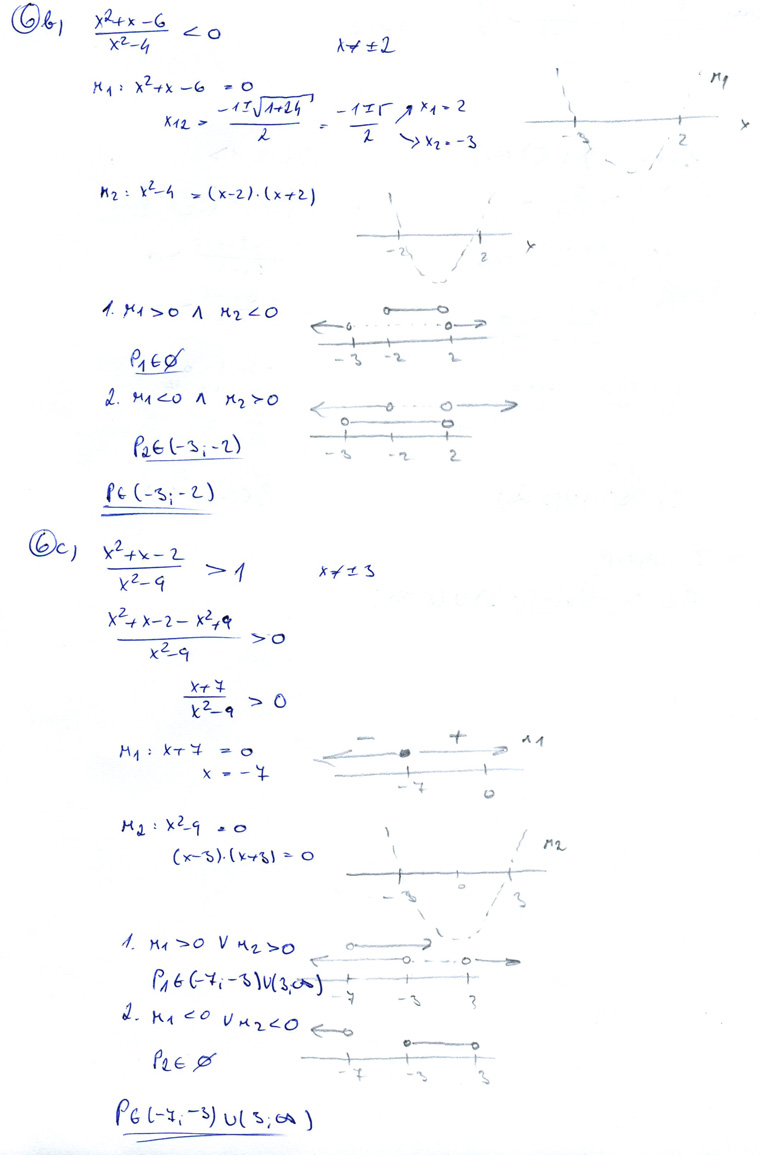 6b) (x²+x-6)/(x²-4) < 0    x ≠ ±2
M1: x²+x-6 = 0
x12 = (-1±√(1+24))/2 = (-1±5)/2 ↗ x1 = 2
↘ x2 = -3
M1
-3 2 x
M2: x²-4 = (x-2)·(x+2)
-2 2 x
1. M1>0 ∧ M2<0
-3 -2 2
P1∈∅
2. M1<0 ∧ M2>0
P2∈(-3;-2)
-3 -2 2
P∈(-3;-2)
6c) (x²+x-2)/(x²-9) > 1    x ≠ ±3
(x²+x-2-x²+9)/(x²-9) > 0
(x+7)/(x²-9) > 0
M1: x+7 = 0
x = -7
- + M1
-7 0
M2: x²-9 = 0
(x-3)·(x+3) = 0
M2
-3 0 3
1. M1>0 ∨ M2>0
P1∈(-7;-3)∪(3;∞)
-7 -3 3
2. M1<0 ∨ M2<0
P2∈∅
-7 -3 3
P∈(-7;-3)∪(3;∞)